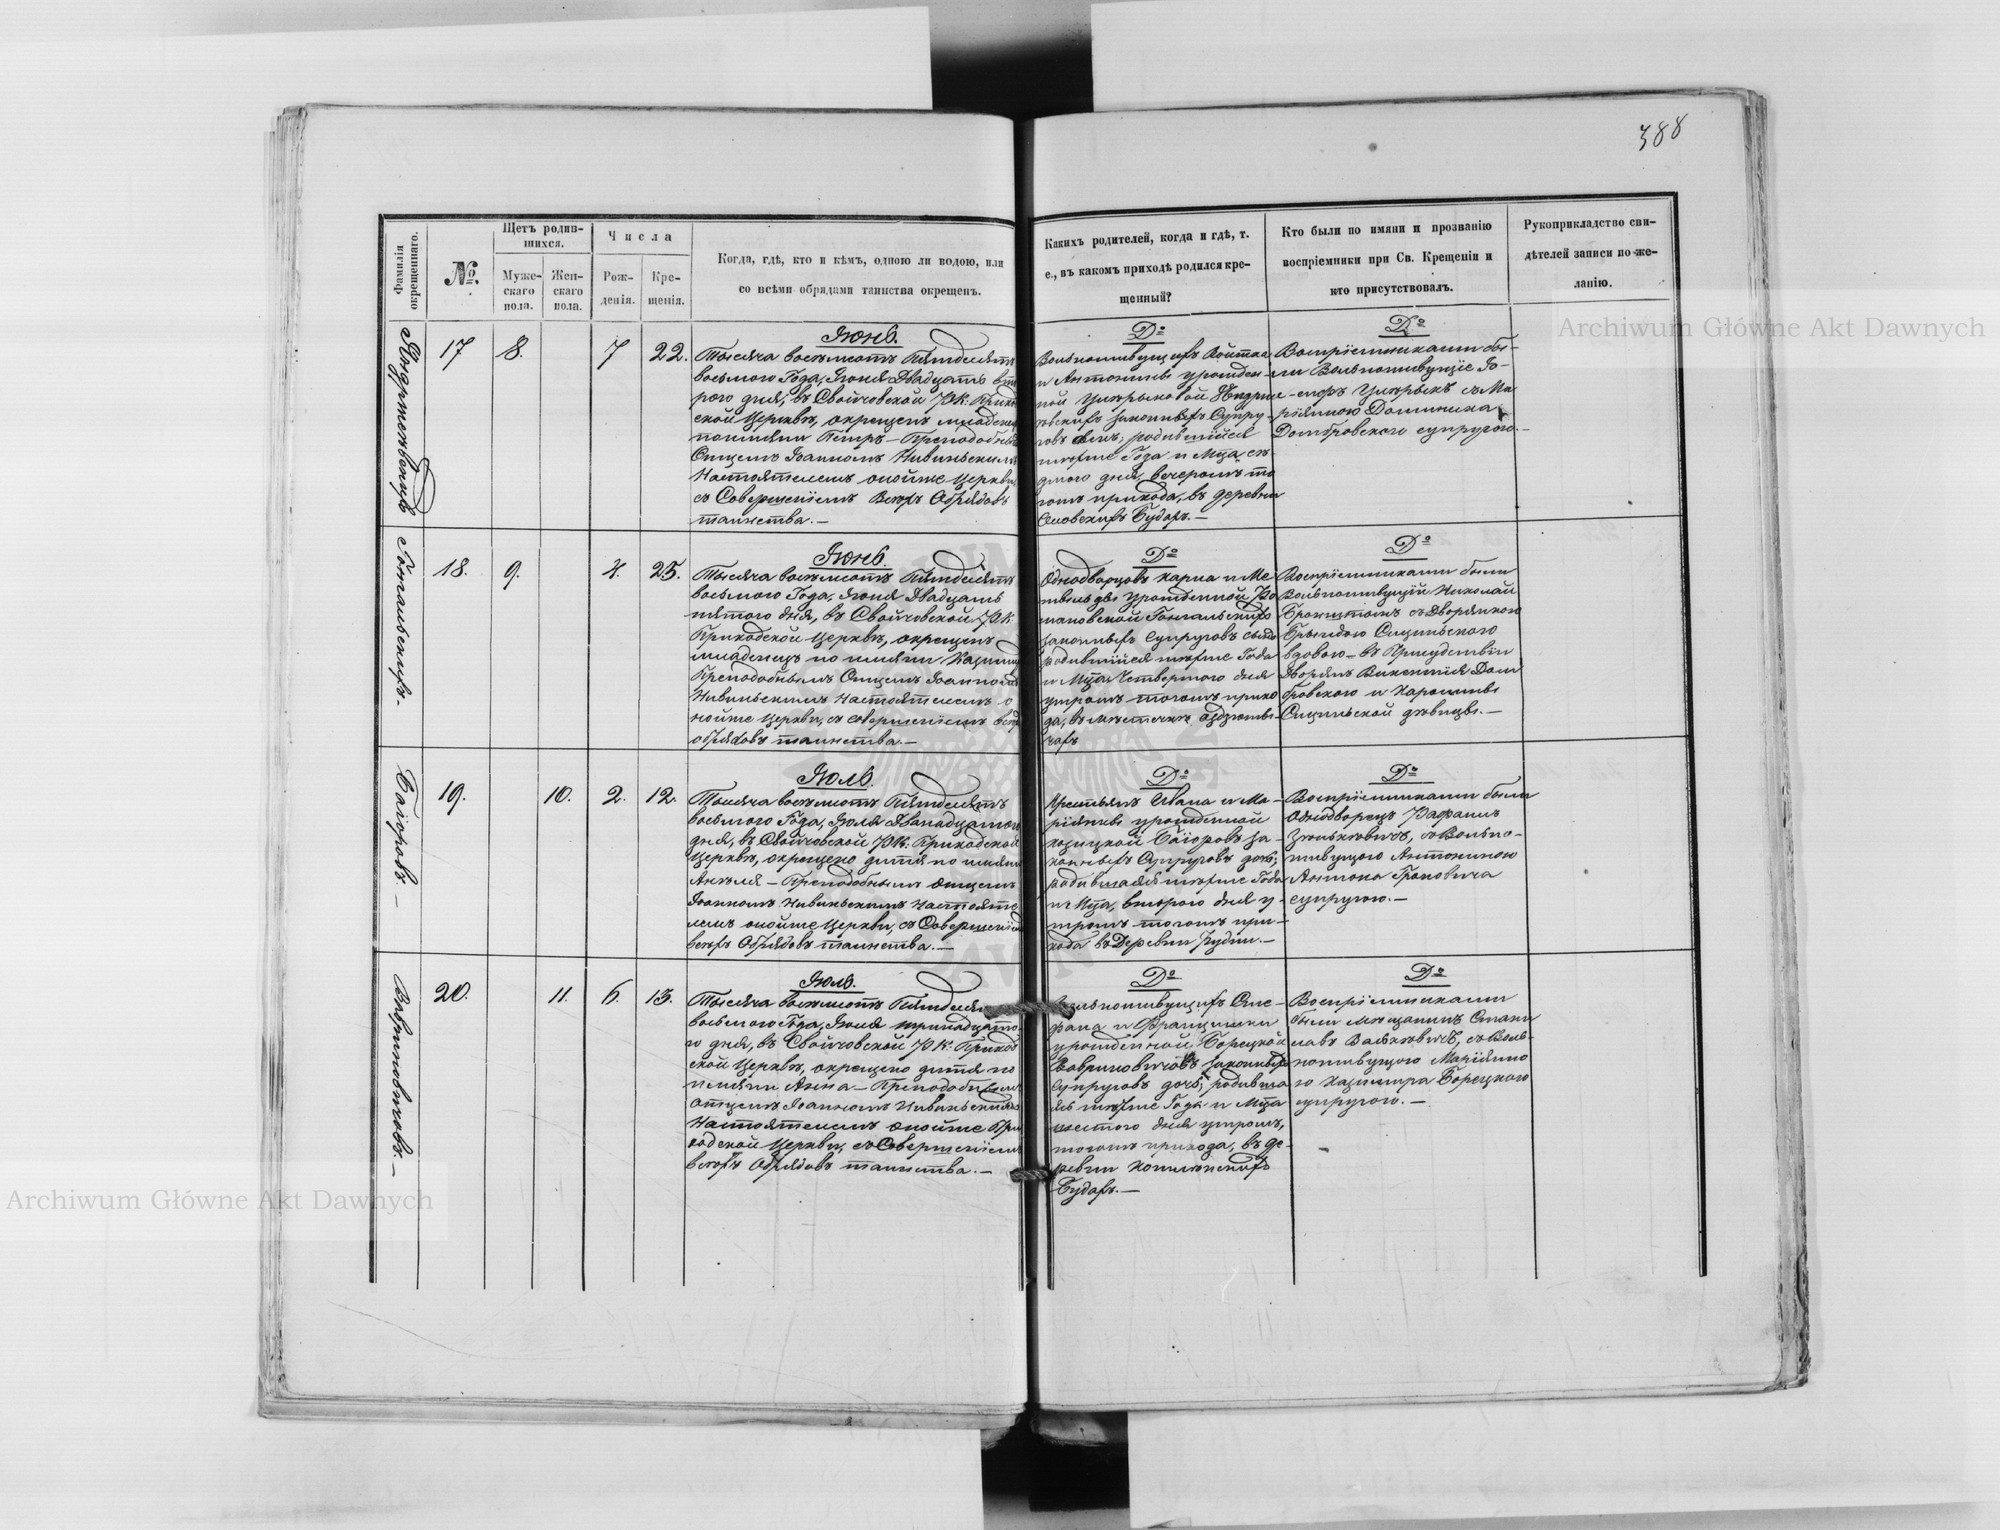 388
Фамилія окрещеннаго.
№.
Щетъ родив-
шихся.
Муже-
скаго
пола.
Жен-
скаго
пола.
Числа
Рож-
денія.
Кре-
щенія.
Когда, гдѣ, кто и кѣмъ, одною ли водою, или
со всѣми обрядами таинства окрещенъ.
Какихъ родителей, когда и гдѣ, т.
е., въ какомъ приходѣ родился кре-
щенный?
Кто были по имяни и прозванію
воспріемники при Св. Крещеніи и
кто присутствовалъ.
Рукоприкладство сви-
дѣтелей записи по же-
ланію.
17
8.
7
22.
Іюнь.
Тысяча восемьсотъ Пятьдесятъ
восьмого Года, Іюня Двадцать вто
рого дня, въ Свойчовской Р:К: Приход
ской Церквѣ, окрещенъ младенец
по имяни Петръ – Преподобнымъ
Отцемъ Іоанномъ Нивинскимъ
Настоятелемъ онойже Церкви,
съ Совершеніемъ Всѣхъ Обрядовъ
таинства. —
Dº
Вольноживущихъ Войтѣха
и Антонины урожден-
ной
законныхъ Супру-
говъ сынъ, родившійся
тѣхже Года и Мца се
дмого дня, вечеромъ то
гожъ прихода, въ деревни
Будахъ. —
Dº
Воспріемниками бы-
ли Вольноживущіе Іо-
сифъ съ Ма
ріянною Доминика
Домбровскаго супругою. —
18.
9.
4.
25.
Іюнь.
Тысяча восемьсотъ Пятьдесятъ
восьмого Года, Іюня Двадцать
пятого дня, въ Свойчовской Р:К:
Приходской Церквѣ, окрещенъ
младенецъ по имяни Казимир
Преподобнымъ Отцемъ Іоанномъ
Нивинскимъ Настоятелемъ о
нойже Церкви, съ совершеніемъ всѣхъ
обрядовъ таинства. —
Dº
Однодворцовъ Карла и Ме
урожденной Ро
мановской
законныхъ Супруговъ сынъ
родившійся тѣхже Года
и Мца Четвертого дня
утромъ тогожъ прихо
да, въ мѣстечкѣ
Dº
Воспріемниками были
Вольноживущій Николай
съ Дворянкою
вдовою – въ Присудствіи
Дворянъ Викентія Дом
бровского и Каролины
дѣвицы. —
Баіоровъ –
19.
10.
2.
12.
Іюль.
Тысяча восемьсотъ Пятьдесятъ
восьмого Года, Іюля Двѣнадцатого
дня, въ Свойчовской Р:К: Приходской
Церквѣ, окрещено дитя по имяни
Анѣля – Преподобнымъ отцемъ
Іоанномъ Нивинскимъ Настояте
лемъ онойже Церкви, съ Совершеніемъ
всѣхъ Обрядовъ таинства. —
Dº
Крестьянъ Ивана и Ма-
ріянны урожденной
Баіоровъ за-
конныхъ Супруговъ дочь,
родившаяся тѣхже Года
и Мца, второго дня у-
тромъ тогожъ при-
хода въ Деревни Рудни. —
Dº
Воспріемниками были
Однодворецъ
съ Вольно-
живущего Антониною
Антона
супругою. —
Вавриновичовъ. —
20.
11.
6.
13.
Іюль.
Тысяча восемьсотъ Пятьдесятъ
восьмого Года, Іюля тринадцато
го дня, въ Свойчовской Р:К: Приход
ской Церквѣ, окрещено дитя по
имяни Анна – Преподобнымъ
отцемъ Іоанномъ Нивинскимъ
Настоятелемъ онойже При
ходской Церкви, съ Совершеніемъ
всѣхъ Обрядовъ таинства. —
Dº
Вольноживущихъ Сте-
фана и Францишки
урожденной Борецкой
Вавриновичовъ законныхъ
Супруговъ дочь, родивша
яся тѣхже Года и Мца
шестого дня утромъ,
тогожъ прихода, въ де-
ревни
Будахъ. —
Dº
Воспріемниками
были мѣщанинъ Стани
славъ съ Воль-
ноживущего Маріянно
ю Казимира Борецкого
супругою. —
Archiwum Główne Akt Dawnych
Archiwum Główne Akt Dawnych